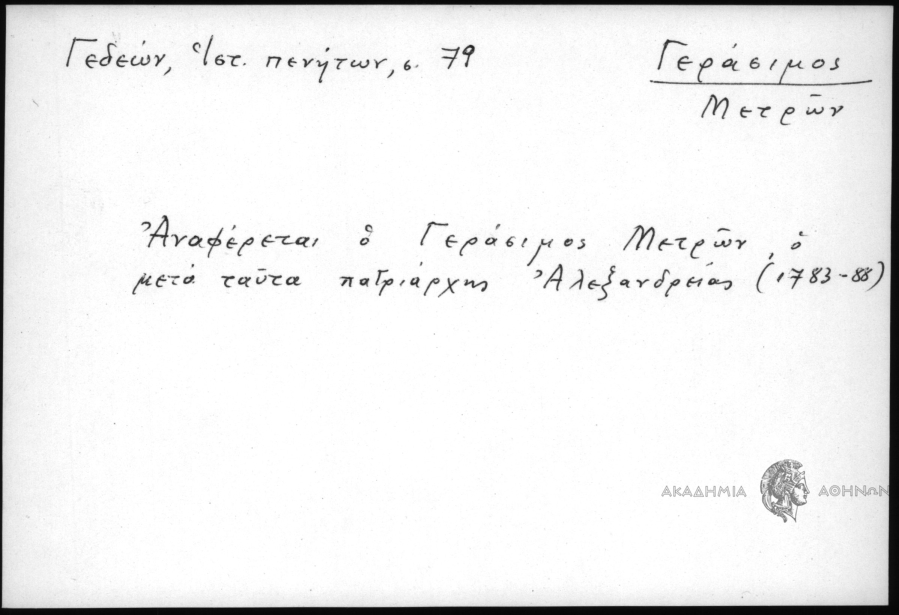 Γεδεών, Ἱστ. πενήτων, σ. 79
Γεράσιμος
Μετρῶν
Ἀναφέρεται ὁ Γεράσιμος Μετρῶν, ὁ
μετὰ ταῦτα πατριάρχης Ἀλεξανδρείας (1783-88)
ΑΚΑΔΗΜΙΑ ΑΘΗΝΩΝ